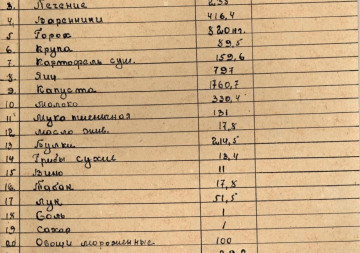 3. Печение 235
4 Вареники 416,4
5 Горох 820 кг.
6. Крупа 89,5
7. Картофель суш. 159,6
8. Яиц 797
9. Капуста 1760,7
10. Молоко 330,4
11 Мука пшеничная 131
12. Масло жив. 17,8
13 Булки 214,5
14 Грибы сухие 13,4
15 Вино 11
16. Табак 17,8
17 Лук 51,5
18 Соль 1
19 Сахар 1
20 Овощи мороженные 100